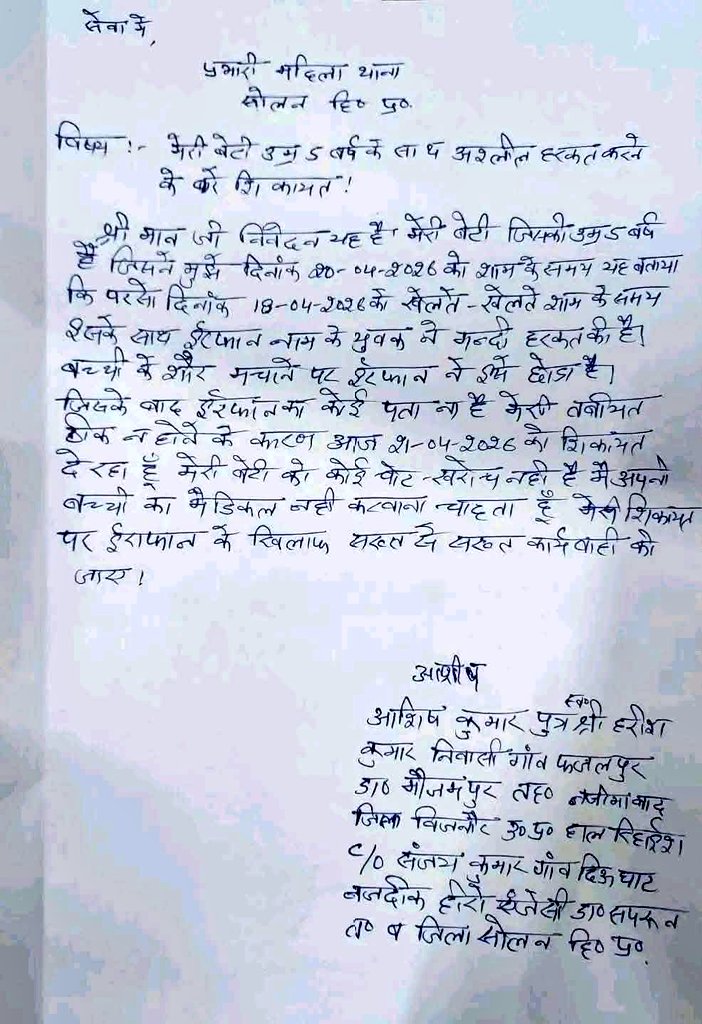 सेवा में,
प्रभारी महिला थाना
सोलन हि० प्र०
विषय :- मेरी बेटी उम्र 5 वर्ष के साथ अश्लील हरकत करने
के बारे शिकायत!
श्री मान जी निवेदन यह है मेरी बेटी जिसकी उम्र 5 वर्ष
है जिसने मुझे दिनांक 20-04-2026 को शाम के समय यह बताया
कि परसो दिनांक 18-04-2026 को खेलते-खेलते शाम के समय
इसके साथ ईरफान नाम के युवक ने गन्दी हरकत की है।
बच्ची के शौर मचाने पर ईरफान ने इसे छोडा है।
जिसके बाद ईरफान का कोई पता ना है मेरी तबीयत
ठीक न होने के कारण आज 21-04-2026 को शिकायत
दे रहा हूँ मेरी बेटी को कोई चोट-खरोच नही है मै अपनी
बच्ची का मैडिकल नही करवाना चाहता हूँ मेरी शिकायत
पर ईराफान के खिलाफ सख्त से सख्त कार्यवाही की
जाए।
आशीष
आशिष कुमार पुत्र स्व० श्री हरीश
कुमार निवासी गाँव फजलपुर
डा० मौजमपुर तह० नजीमाबाद
जिला बिजनौर उ० प्र० हाल रिहाईश
C/O संजय कुमार गाँव दिऊघाट
नजदीक हीरो एजेंसी डा० सपरून
त० व जिला सोलन हि० प्र०.